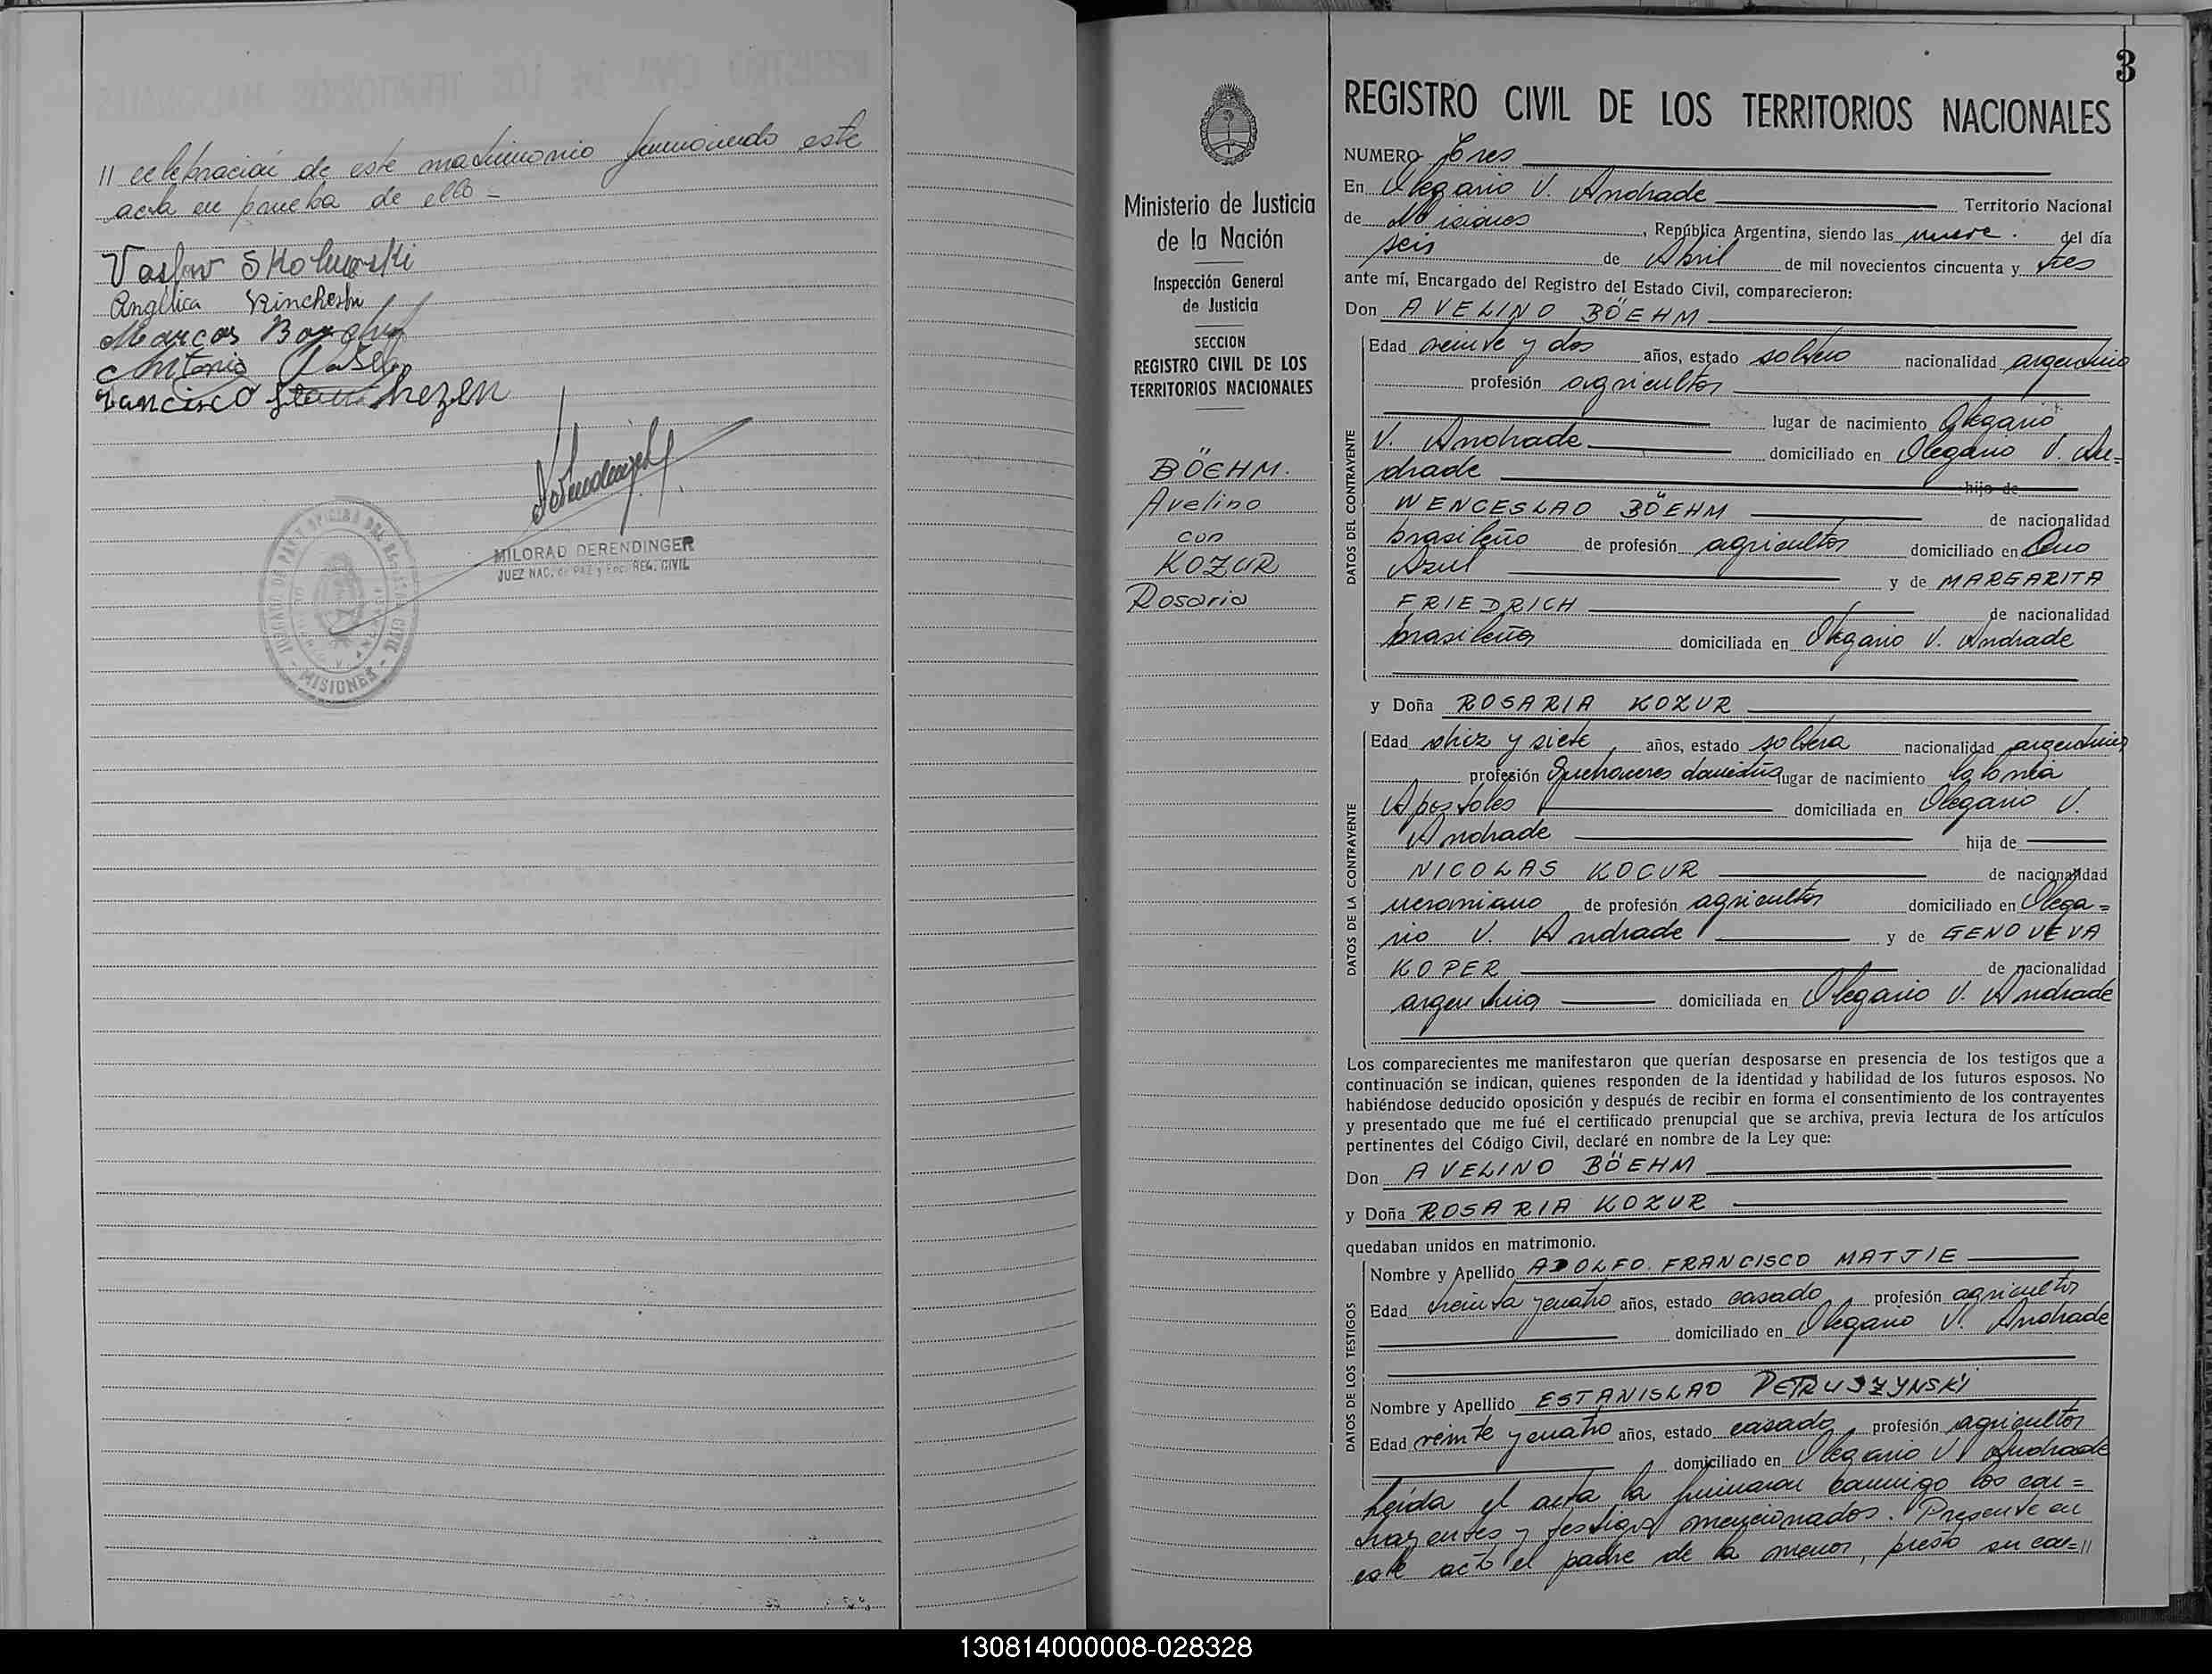 // celebración de este matrimonio firmando este
acta en prueba de ello -
Angélica
Marcos
Antonio
Francisco
MILORAD DERENDINGER
JUEZ NAC. de PAZ y Enc. REG. CIVIL
MISIONES
3
Ministerio de Justicia
de la Nación
Inspección General
de Justicia
SECCION
REGISTRO CIVIL DE LOS
TERRITORIOS NACIONALES
BÖEHM.
Avelino
con
KOZUR
Rosaria
REGISTRO CIVIL DE LOS TERRITORIOS NACIONALES
NUMERO Tres
En Olegario V. Andrade Territorio Nacional
de Misiones, República Argentina, siendo las nueve. del día
seis de Abril de mil novecientos cincuenta y tres
ante mí, Encargado del Registro del Estado Civil, comparecieron:
Don AVELINO BÖEHM
DATOS DEL CONTRAYENTE
Edad veinte y dos años, estado soltero nacionalidad argentino
profesión agricultor
lugar de nacimiento Olegario
V. Andrade domiciliado en Olegario V. An=
drade hijo de
WENCESLAO BÖEHM de nacionalidad
brasileño de profesión agricultor domiciliado en
Azul y de MARGARITA
FRIEDRICH de nacionalidad
brasileña domiciliada en Olegario V. Andrade
y Doña ROSARIA KOZUR
DATOS DE LA CONTRAYENTE
Edad diez y siete años, estado soltera nacionalidad argentina
profesión Quehaceres domésticos lugar de nacimiento Colonia
Apostoles domiciliada en Olegario V.
Andrade hija de
NICOLAS KOCUR de nacionalidad
ucraniano de profesión agricultor domiciliado en Olega=
rio V. Andrade y de GENOVEVA
KOPER de nacionalidad
argentina domiciliada en Olegario V. Andrade
Los comparecientes me manifestaron que querían desposarse en presencia de los testigos que a
continuación se indican, quienes responden de la identidad y habilidad de los futuros esposos. No
habiéndose deducido oposición y después de recibir en forma el consentimiento de los contrayentes
y presentado que me fué el certificado prenupcial que se archiva, previa lectura de los artículos
pertinentes del Código Civil, declaré en nombre de la Ley que:
Don AVELINO BÖEHM
y Doña ROSARIA KOZUR
quedaban unidos en matrimonio.
DATOS DE LOS TESTIGOS
Nombre y Apellido ADOLFO FRANCISCO MATJIE
Edad treinta y cuatro años, estado casado profesión agricultor
domiciliado en Olegario V. Andrade
Nombre y Apellido ESTANISLAO PETRUSZYNSKI
Edad veinte y cuatro años, estado casado profesión agricultor
domiciliado en Olegario V. Andrade
Leída el acta la firmaron conmigo los con=
trayentes y testigos mencionados. Presente en
este acto el padre de la menor, prestó su con=//
130814000008-028328